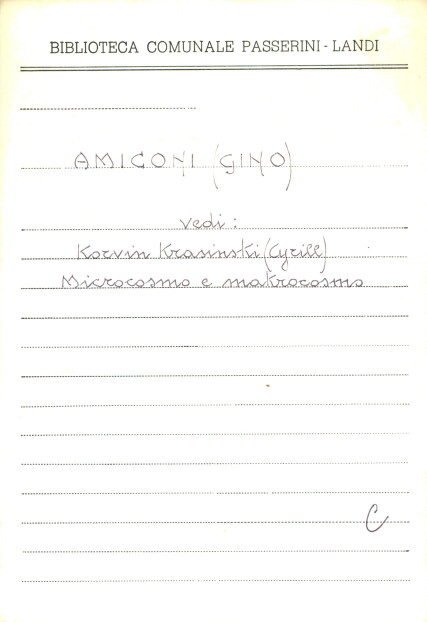 BIBLIOTECA COMUNALE PASSERINI - LANDI
AMIGONI (GINO)
vedi:
Korvin Krasinski (Cyrill)
Microcosmo e makrocosmo
C